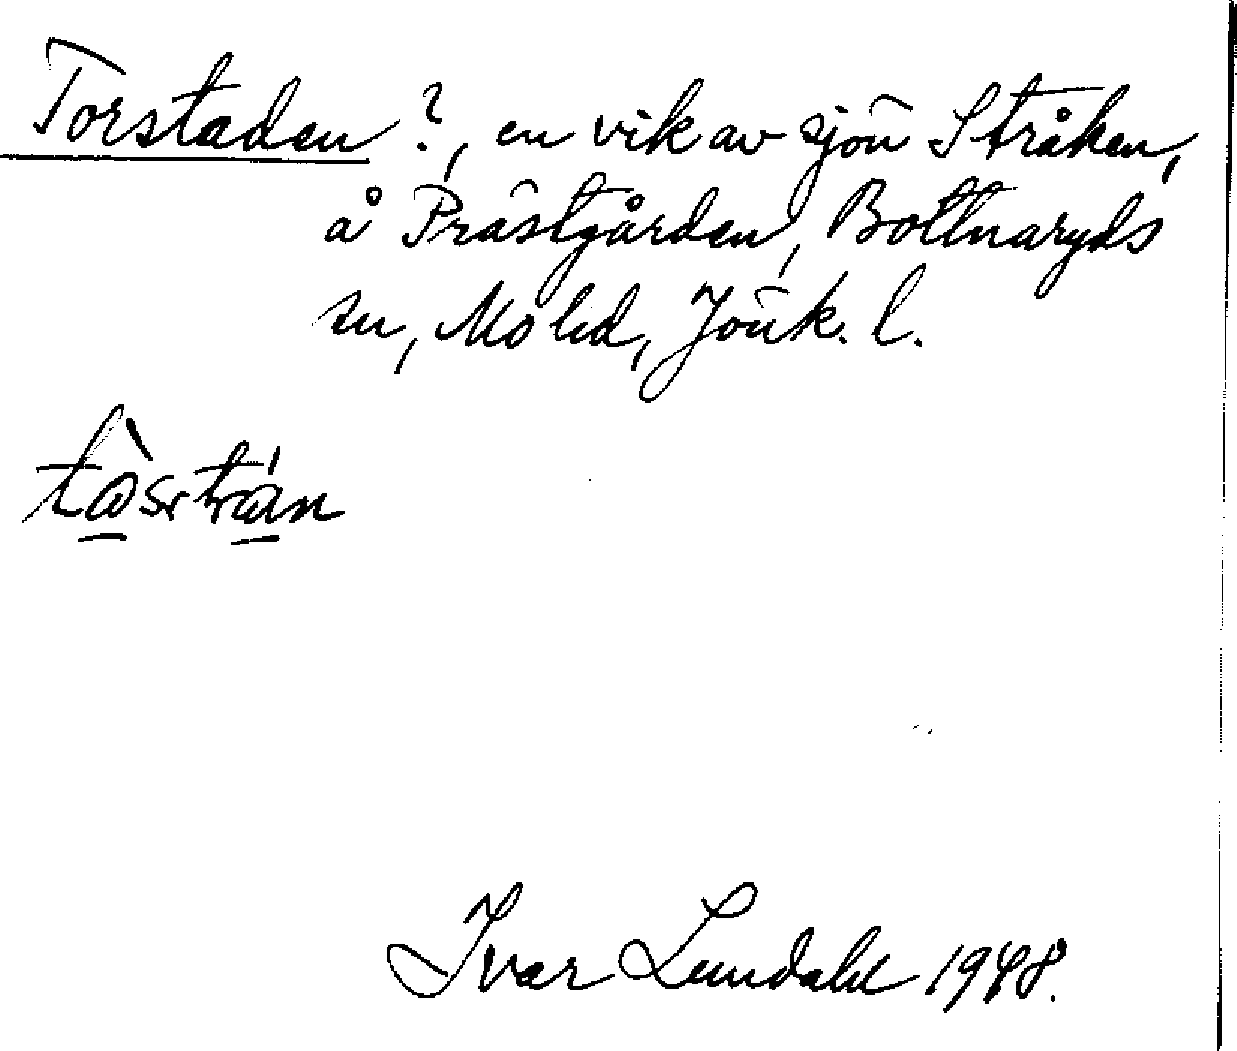 Torstaden ?, en vik av sjön Stråken,
å Prästgården, Bottnaryds
sn, Mo hd, Jönk. l.
Ivar Lundahl 1948.